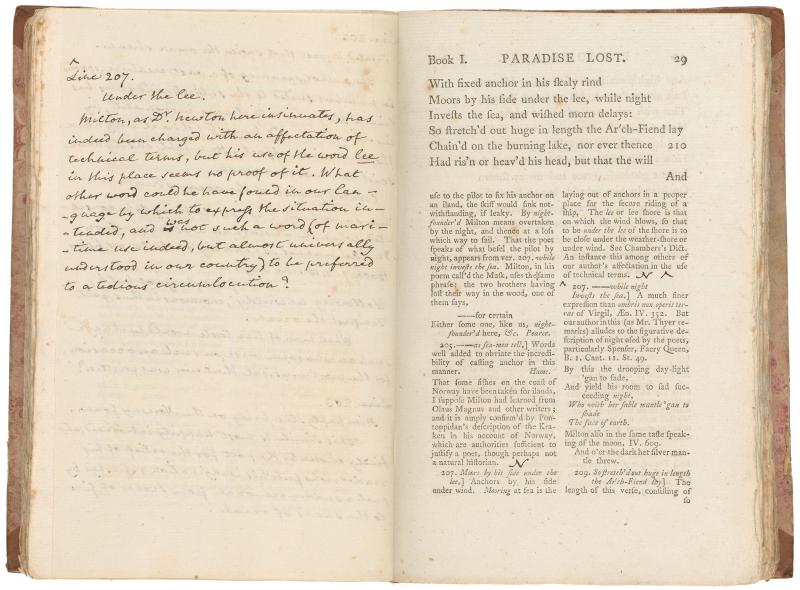 ^
Line 207.
Under the lee.
Milton, as Dr. Newton here insinuates, has
indeed been charged with an affectation of
technical terms, but his use of the word lee
in this place seems no proof of it. What
other word could he have found in our lan-
-guage by which to express the situation in-
-tended, and was not such a word (of mari-
-time use indeed, but almost universally
understood in our country) to be preferred
to a tedious circumlocution?
Book I. PARADISE LOST. 29
With fixed anchor in his ſkaly rind
Moors by his ſide under the lee, while night
Inveſts the ſea, and wiſhed morn delays:
So ſtretch'd out huge in length the Ar'ch-Fiend lay
Chain'd on the burning lake, nor ever thence 210
Had ris'n or heav'd his head, but that the will
And
uſe to the pilot to fix his anchor on
an iland, the ſkiff would ſink not-
withſtanding, if leaky. By night-
founder'd Milton means overtaken
by the night, and thence at a loſs
which way to ſail. That the poet
ſpeaks of what befel the pilot by
night, appears from ver. 207. while
night inveſts the ſea. Milton, in his
poem call'd the Maſk, uſes the ſame
phraſe: the two brothers having
loſt their way in the wood, one of
them ſays,
——for certain
Either ſome one, like us, night-
founder'd here, &c. Pearce.
205.—as ſea-men tell,] Words
well added to obviate the incredi-
bility of caſting anchor in this
manner. Hume.
That ſome fiſhes on the coaſt of
Norway have been taken for ilands,
I ſuppoſe Milton had learned from
Olaus Magnus and other writers;
and it is amply confirm'd by Pon-
toppidan's deſcription of the Kra-
ken in his account of Norway,
which are authorities ſufficient to
juſtify a poet, though perhaps not
a natural hiſtorian. N
207. Moors by his ſide under the
lee,] Anchors by his ſide
under wind. Mooring at ſea is the
laying out of anchors in a proper
place for the ſecure riding of a
ſhip. The lee or lee ſhore is that
on which the wind blows, ſo that
to be under the lee of the ſhore is to
be cloſe under the weather-ſhore or
under wind. See Chambers's Dict.
An inſtance this among others of
our author's affectation in the uſe
of technical terms. N ^
^ 207. ——while night
Inveſts the ſea,] A much finer
expreſſion than umbris nox operit ter-
ras of Virgil, Æn. IV. 352. But
our author in this (as Mr. Thyer re-
marks) alludes to the figurative de-
ſcription of night uſed by the poets,
particularly Spenſer, Faery Queen,
B. 1. Cant. 11. St. 49.
By this the drooping day-light
'gan to fade,
And yield his room to ſad ſuc-
ceeding night,
Who with her ſable mantle 'gan to
ſhade
The face of earth.
Milton alſo in the ſame taſte ſpeak-
ing of the moon, IV. 609.
And o'er the dark her ſilver man-
tle threw.
209. So ſtretch'd out huge in length
the Ar'ch-Fiend lay] The
length of this verſe, conſiſting of
ſo